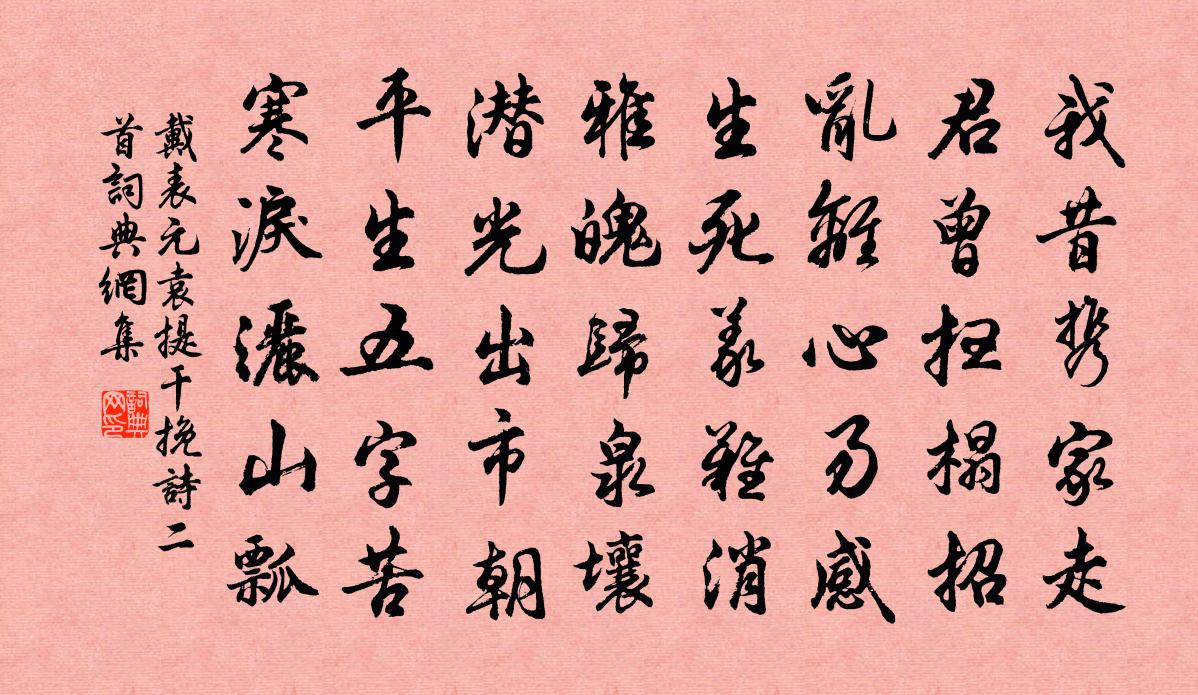 我昔携家走
君曾扫榻招
亂離心易感
生死義難消
雅魄歸泉壤
潜光出市朝
平生五字苦
寒淚灑山瓢
戴表元袁提干挽詩二
首詞典網集
詞典网印